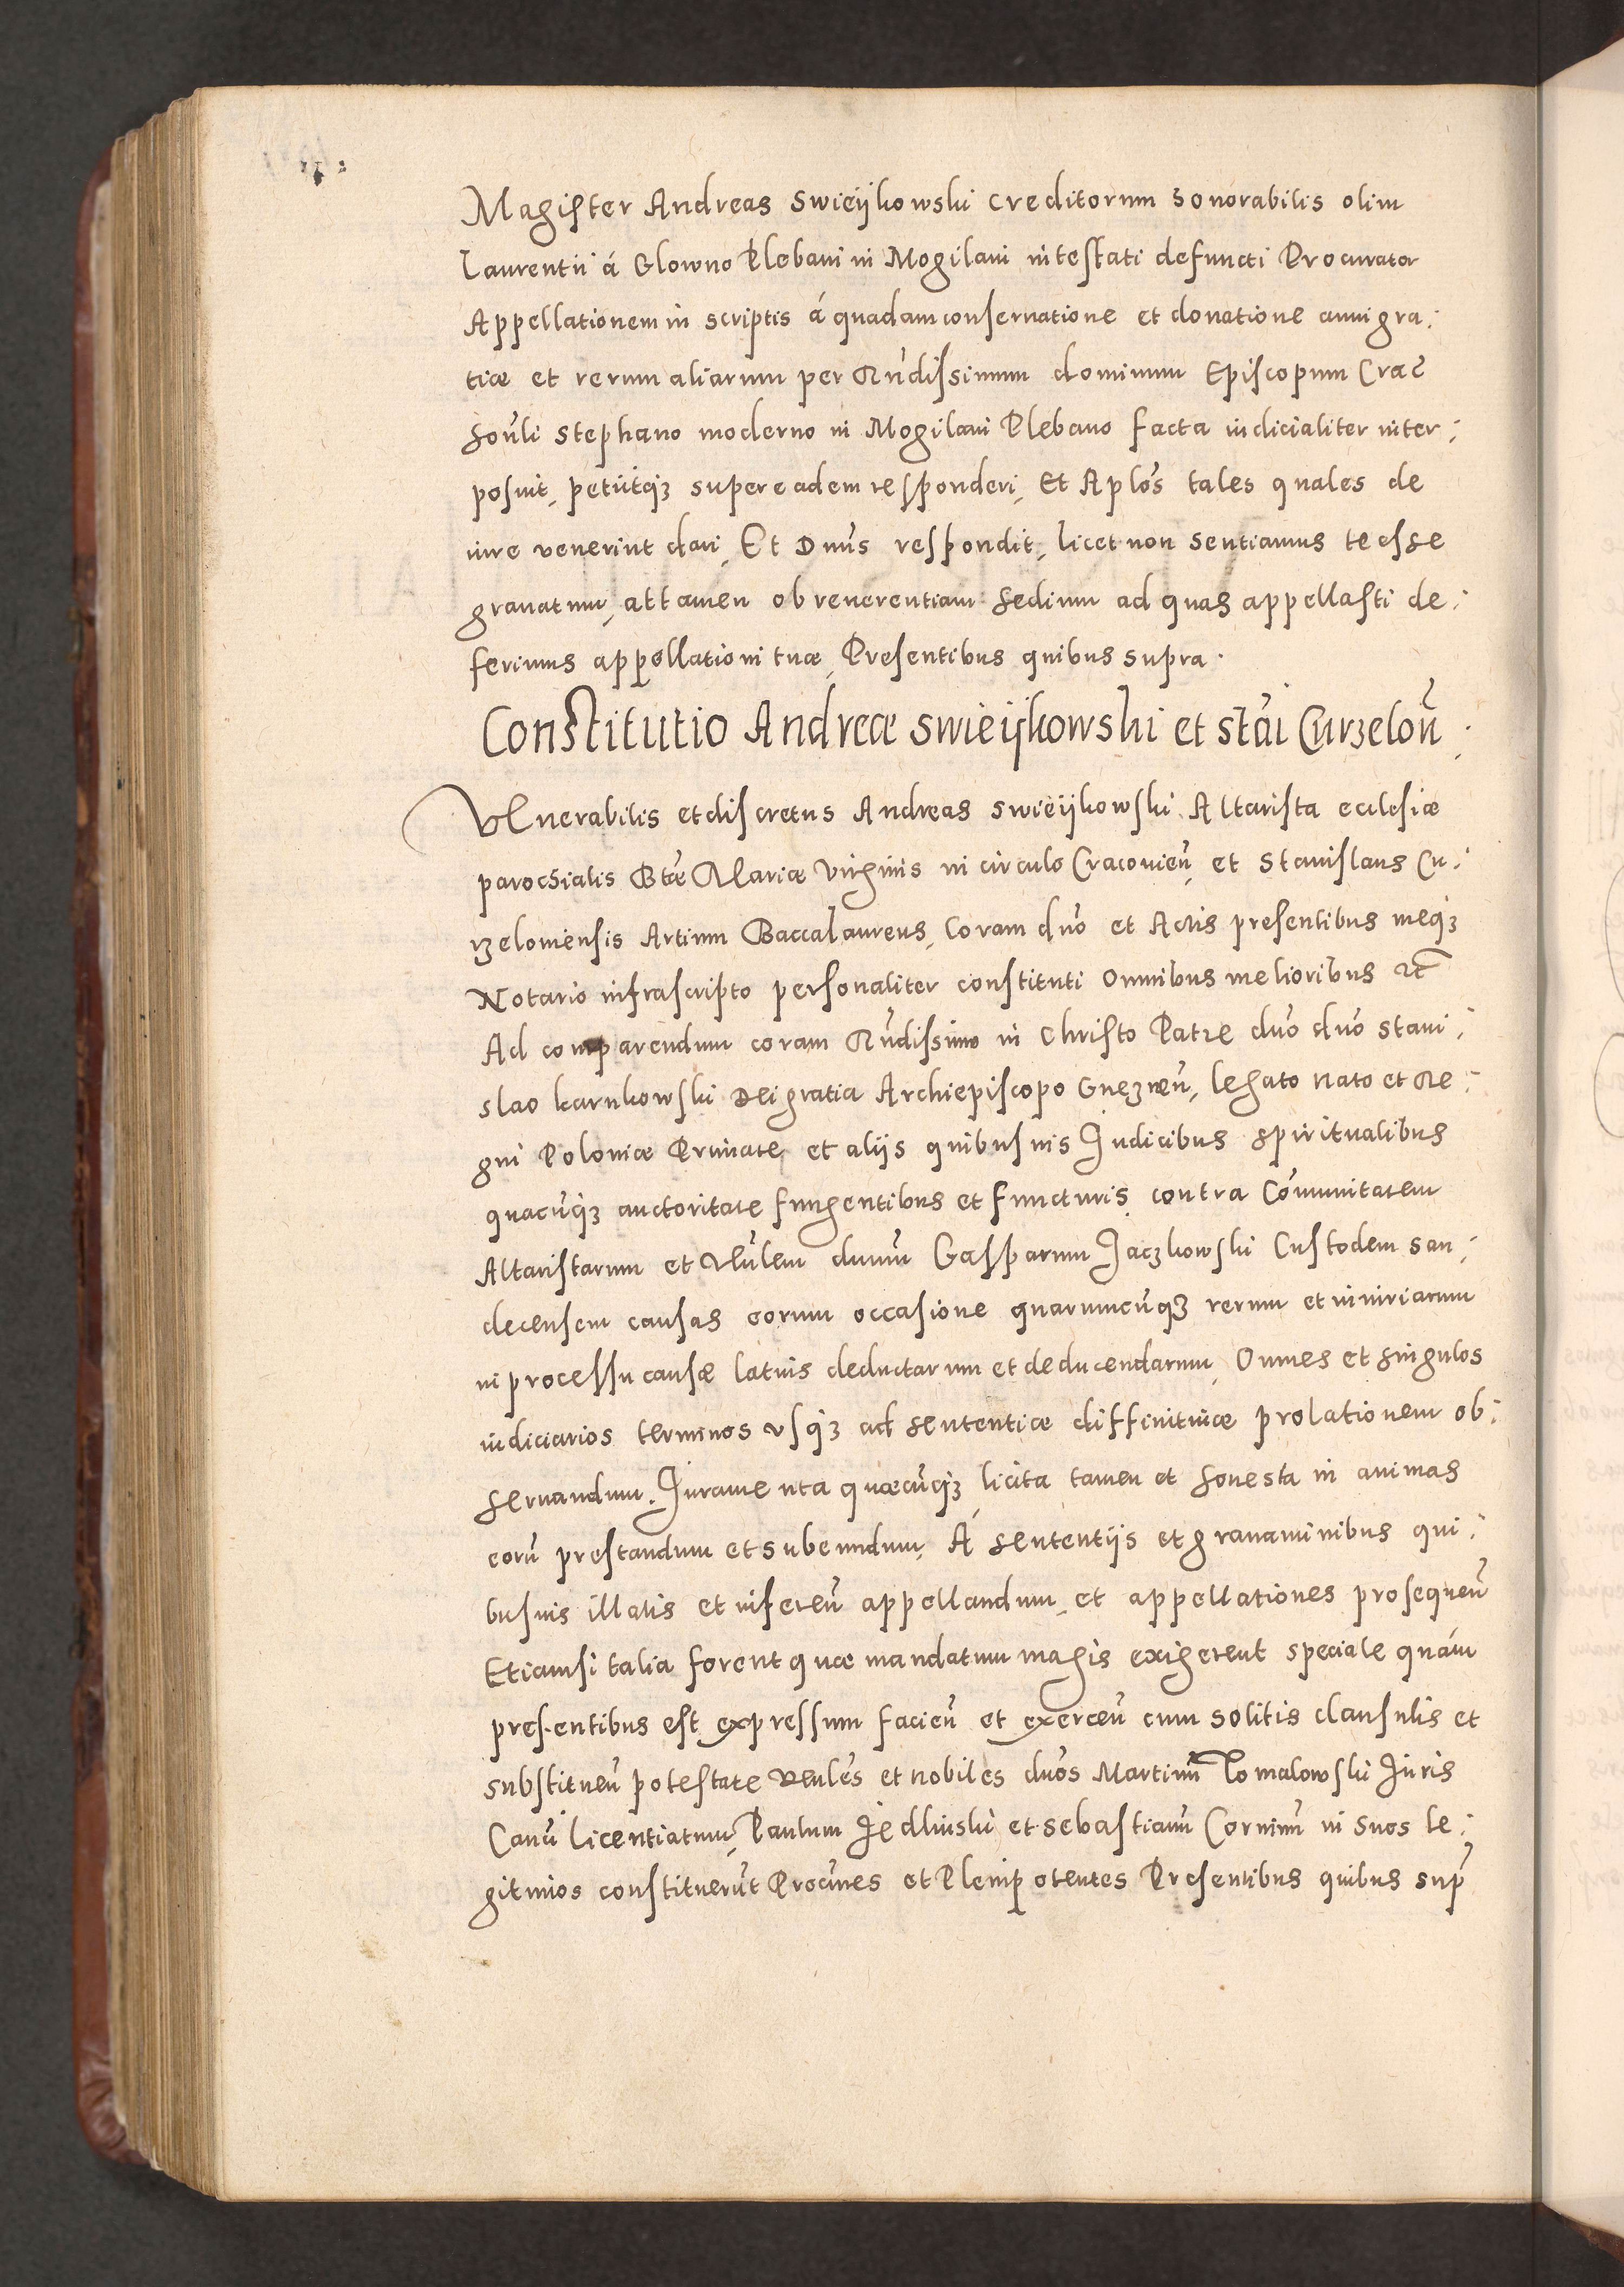 Magister Andreas Swieijkowski creditorum honorabilis olim
Laurentii á Glowno Plebani in Mogilani intestati defuncti Procurator
Appellationem in scriptis á quadam conservatione et donatione anni gra:
tiæ et rerum aliarum per Rndissimum dominum Episcopum Crac
honli Stephano moderno in Mogilani Plebano facta iudicialiter inter:
posuit, petiitqȝ super eadem responderi, Et Aplos tales quales de
iure venerint dari, Et Dnus respondit, licet non sentiamus te esse
gravatum, attamen ob reverentiam sedium ad quas appellasti de:
ferimus appellationi tuæ, Presentibus quibus supra.
Constitutio Andreæ Swieijkowski et stai Curzelou
Venerabilis et discretus Andreas Swieijkowski Altarista ecclesiæ
parochialis Btæ Mariæ Virginis in circulo Cracovien, et Stanislaus Cu:
rzeloviensis Artium Baccalaureus, Coram dno et Actis presentibus meqȝ
Notario infrascripto personaliter constituti Omnibus melioribus etc
Ad comparendum coram Rndissimo in Christo Patre dno dno Stani:
slao karnkowski Dei gratia Archiepiscopo Gneznen, legato nato et Re:
gni Poloniæ Primate, et aliis quibusvis Judicibus spiritualibus
quacunqȝ auctoritate fungentibus et functuris, contra Comunitatem
Altaristarum et Venlem dnum Gasparum Jaczkowski Custodem san:
decensem causas eorum occasione quarumcunqȝ rerum et iniuriarum
in processu causæ latius deductarum et deducendarum, Omnes et singulos
iudiciarios terminos usqȝ ad sententiæ diffinitivæ prolationem ob:
servandum. Juramenta quæcunqȝ, licita tamen et honesta in animas
eoru prestandum et subeundum, A sententiis et gravaminibus qui:
busvis illatis et inferen appellandum, et appellationes prosequen
Etiamsi talia forent quæ mandatum magis exigerent speciale quám
presentibus est expressum facien et exercen cum solitis clausulis et
substituen potestate Venles et nobiles dnos Martinu Pomalowski Juris
Canci licentiatum, Paulum Jedlinski et Sebastianu Corninu in suos le:
gitimos constituerut Procures et Plenipotentes Presentibus quibus sup